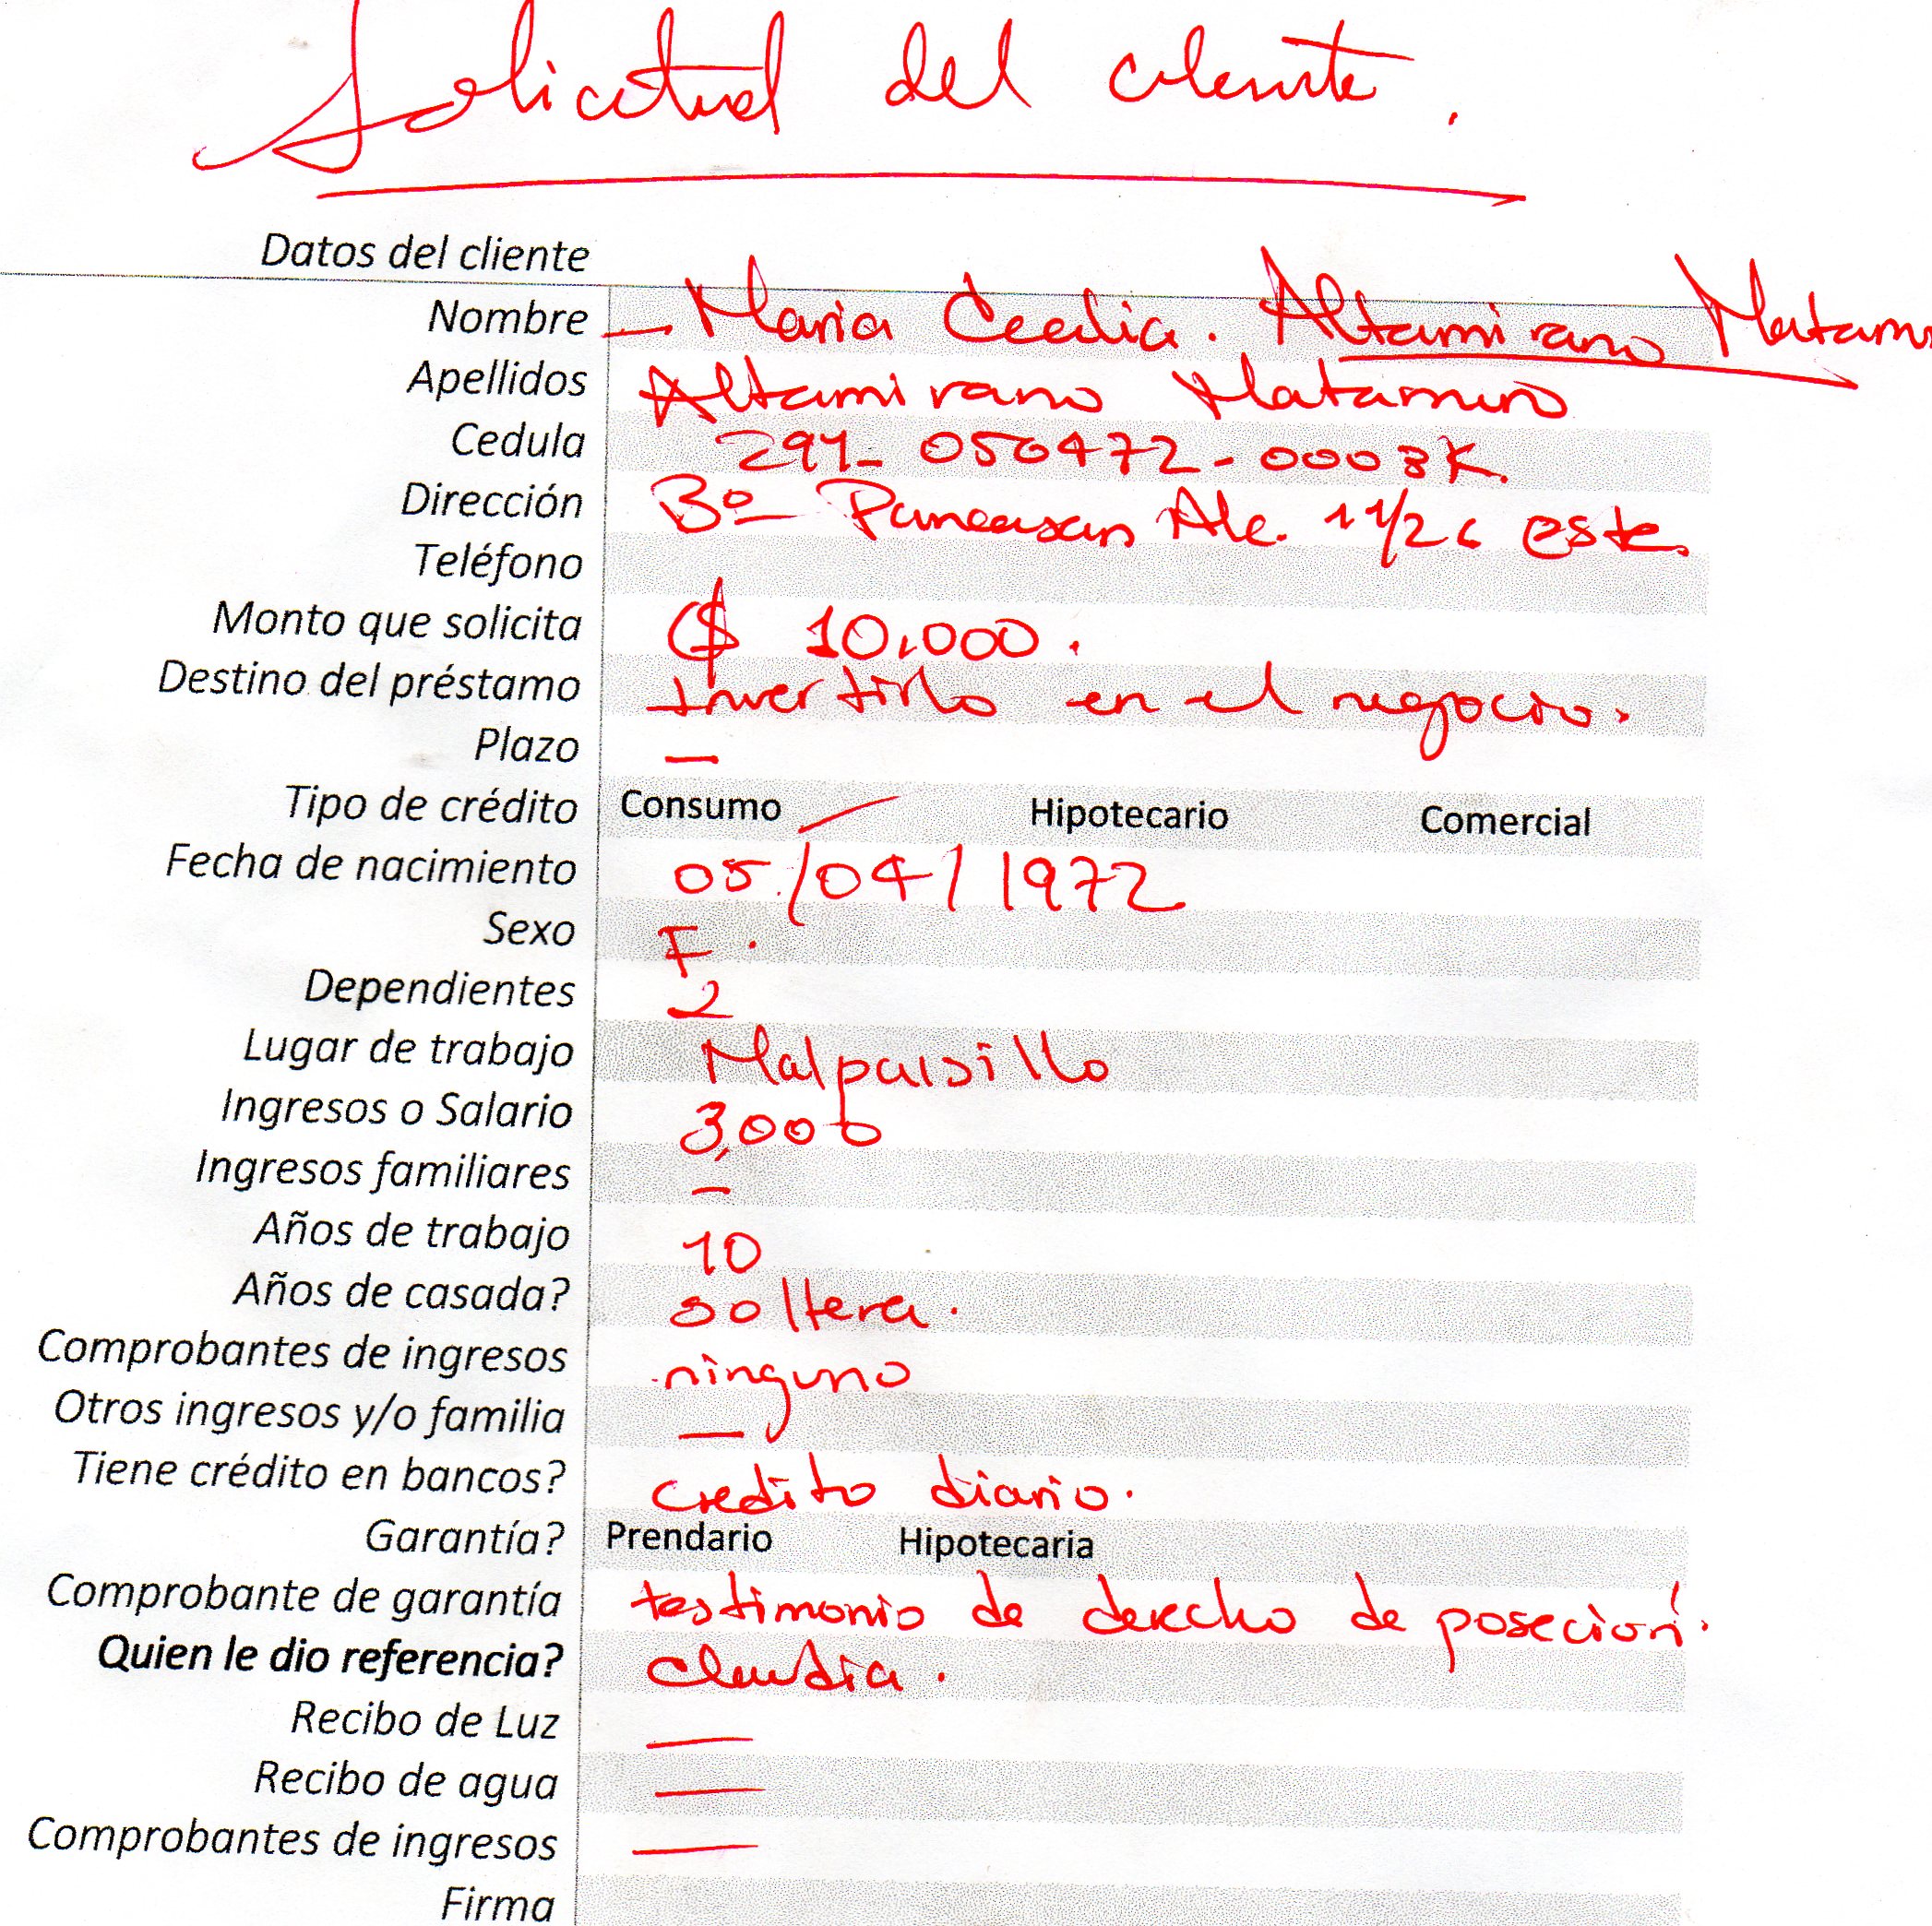 Solicitud del cliente.
Datos del cliente
Nombre – Maria Cecilia. Altamirano Matam
Apellidos Altamirano Matamoro
Cedula 291- 050472-0003K.
Dirección Bo Pancasan Alc. 1 1/2 c este.
Teléfono
Monto que solicita C$ 10,000.
Destino del préstamo Invertirlo en el negocio.
Plazo —
Tipo de crédito Consumo / Hipotecario Comercial
Fecha de nacimiento 05/04/1972
Sexo F.
Dependientes 2
Lugar de trabajo Malpaisillo
Ingresos o Salario 3,000
Ingresos familiares –
Años de trabajo 10
Años de casada? soltera.
Comprobantes de ingresos ninguno
Otros ingresos y/o familia —
Tiene crédito en bancos? credito diario.
Garantía? Prendario Hipotecaria
Comprobante de garantía testimonio de derecho de poseción.
Quien le dio referencia? Claudia.
Recibo de Luz —
Recibo de agua —
Comprobantes de ingresos —
Firma